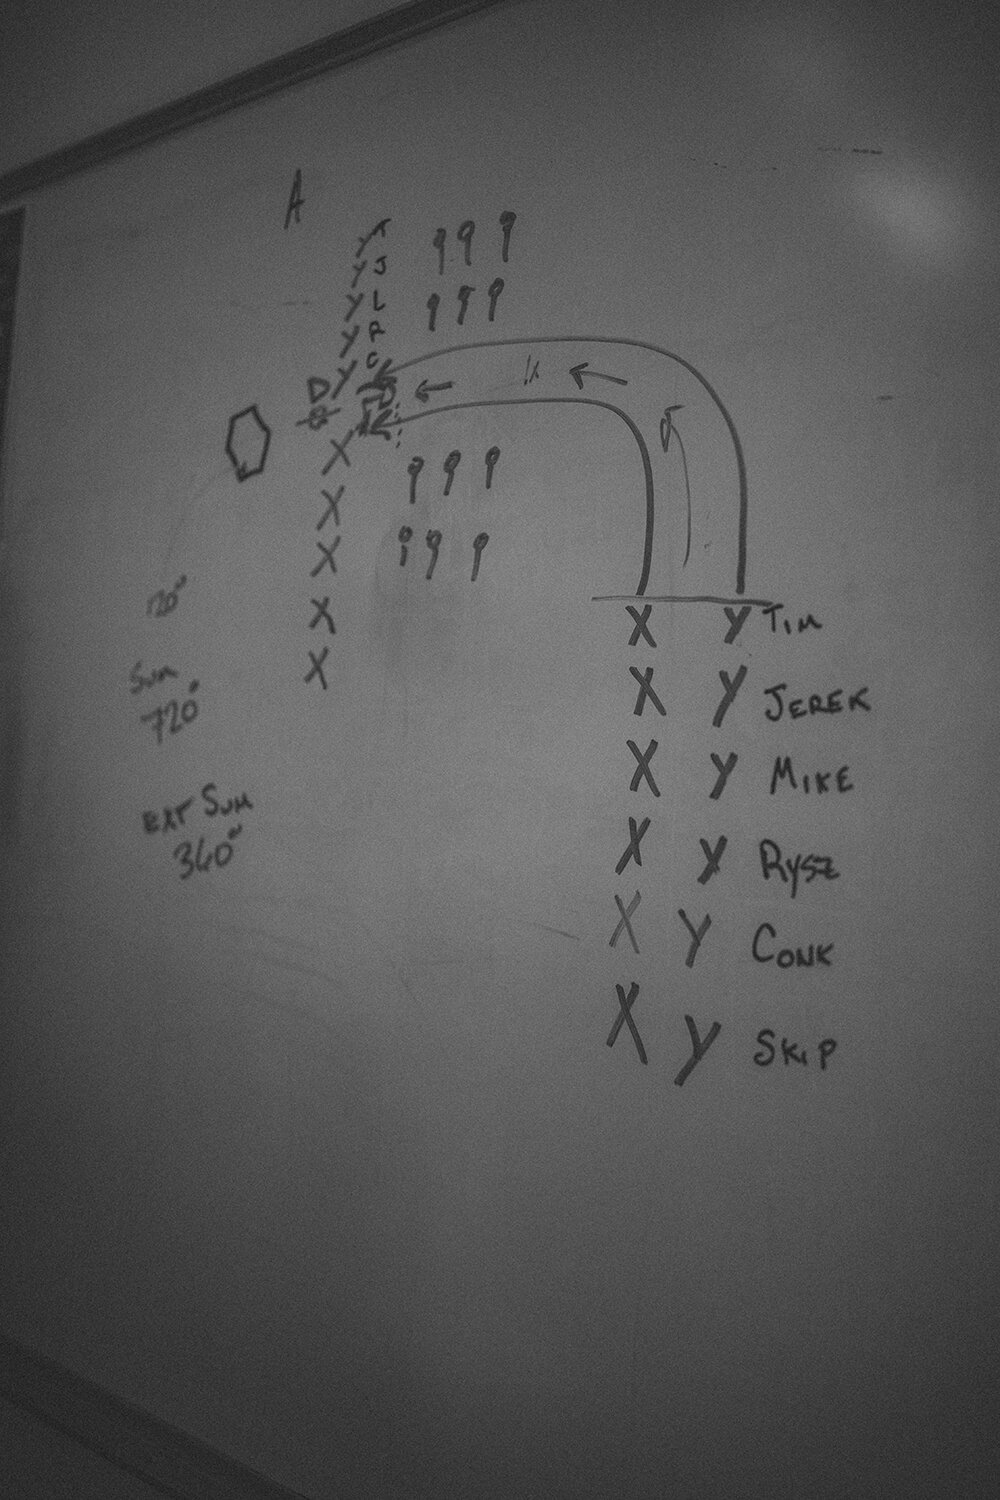 A
Y T
Y J
Y L
Y R
Y C
D
X
X
X
X
X
120°
Sum
720°
EXT SUM
360°
X Y TIM
X Y JEREK
X Y MIKE
X Y RYSZ
X Y CONK
X Y SKIP